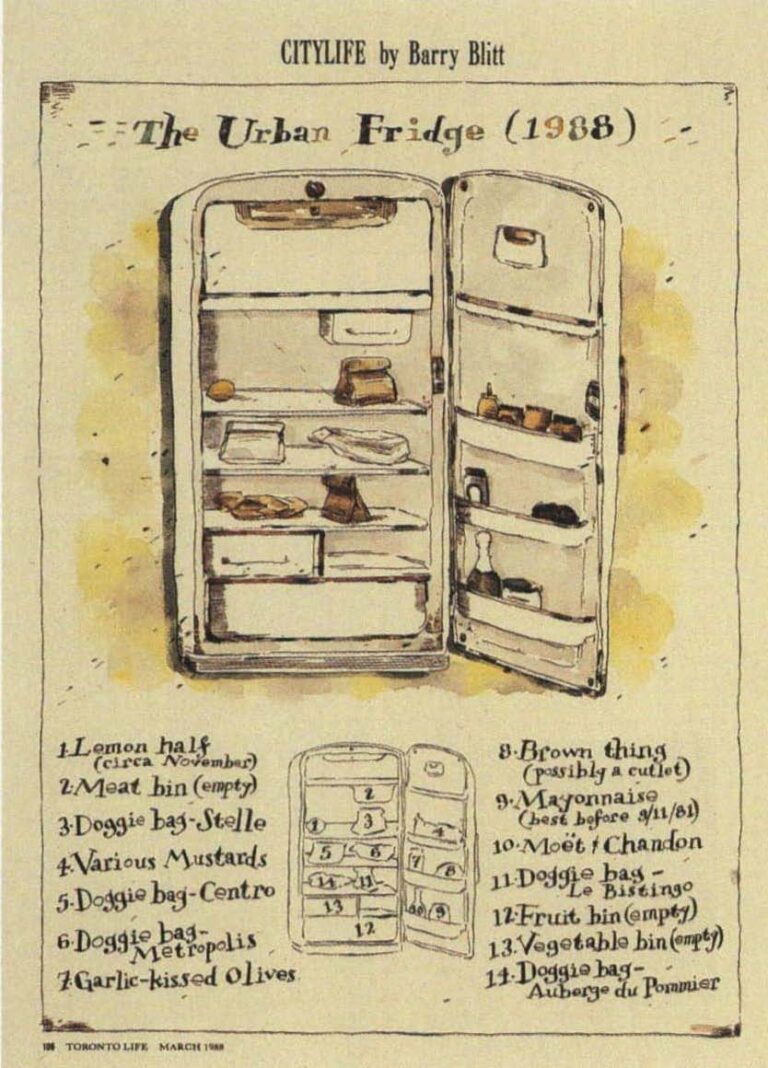 CITYLIFE by Barry Blitt
The Urban Fridge (1988)
1. Lemon half
(circa November)
2. Meat bin (empty)
3. Doggie bag-Stelle
4. Various Mustards
5. Doggie bag-Centro
6. Doggie bag-
Metropolis
7. Garlic-kissed Olives
2
1
3
4
5
6
7
8
14
11
13
10
9
12
8. Brown thing
(possibly a cutlet)
9. Mayonnaise
(best before 9/11/81)
10. Moët & Chandon
11. Doggie bag -
Le Bistingo
12. Fruit bin (empty)
13. Vegetable bin (empty)
14. Doggie bag-
Auberge du Pommier
106 TORONTO LIFE MARCH 1988